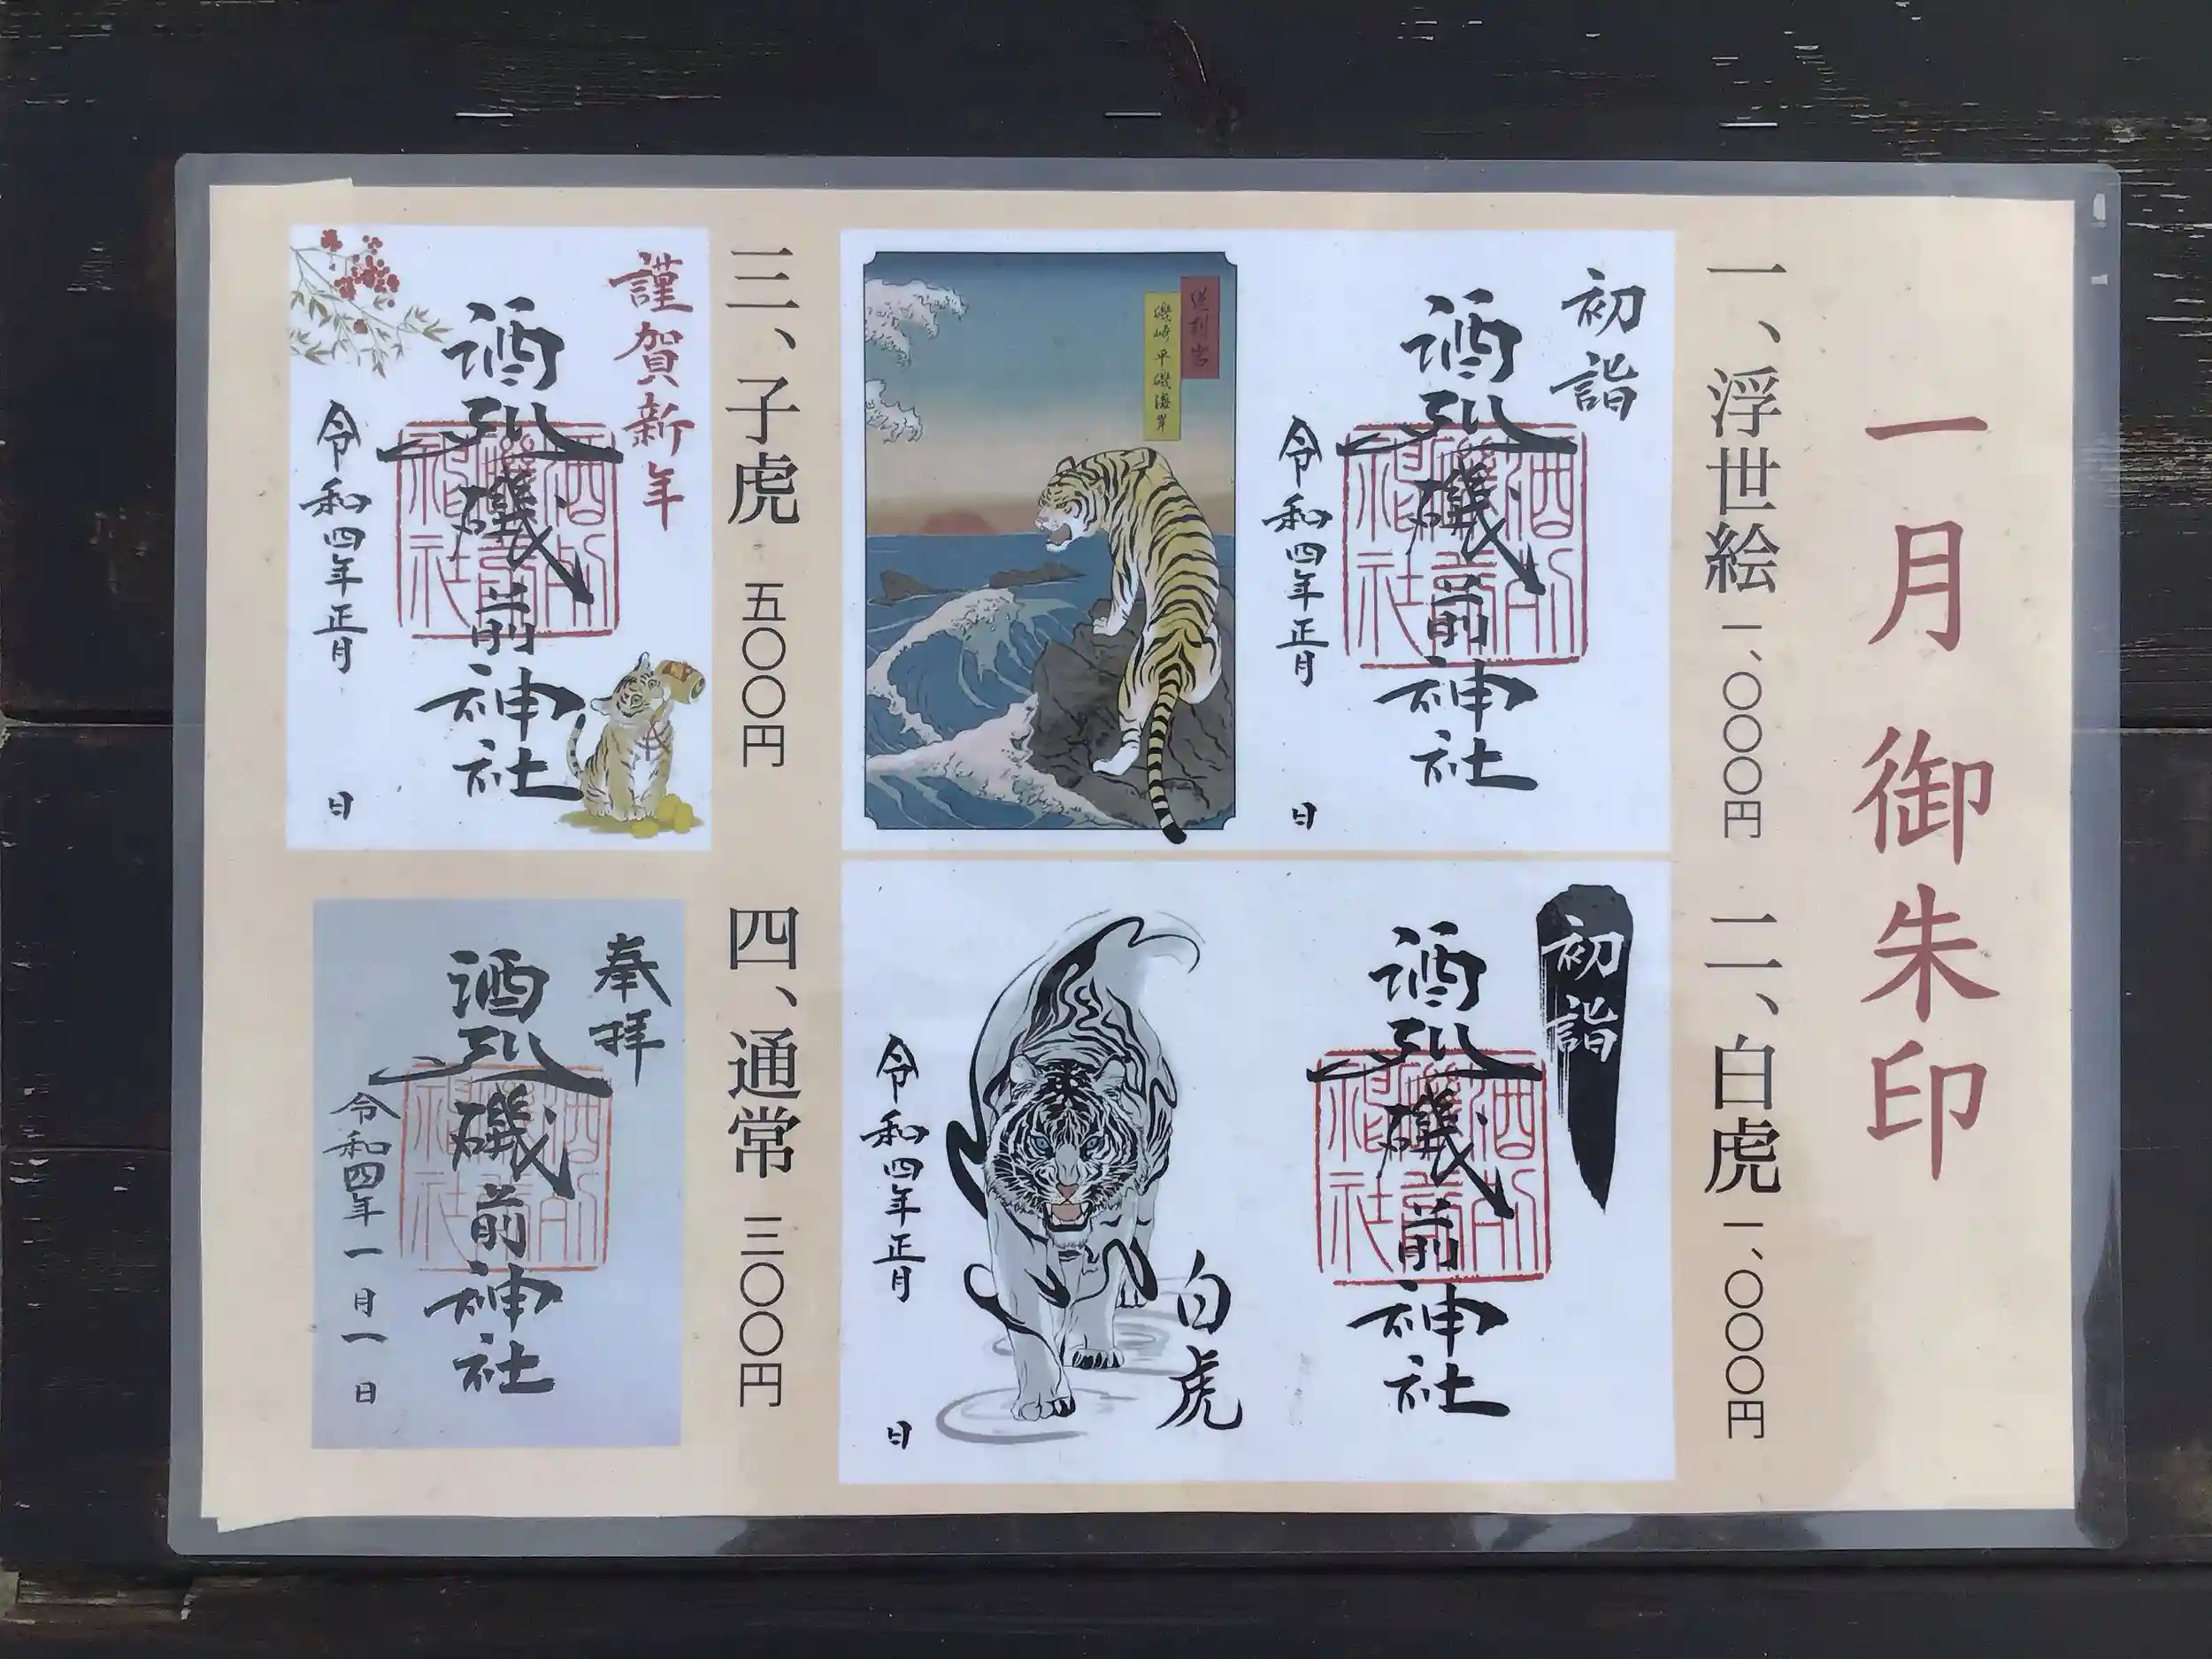 一月 御朱印
一、浮世絵 一、〇〇〇円
初詣
酒列磯前神社
令和四年正月 日
磯崎平磯海岸
二、白虎 一、〇〇〇円
初詣
酒列磯前神社
白虎
令和四年正月 日
三、子虎 五〇〇円
謹賀新年
酒列磯前神社
令和四年正月 日
四、通常 三〇〇円
奉拝
酒列磯前神社
令和四年一月一日